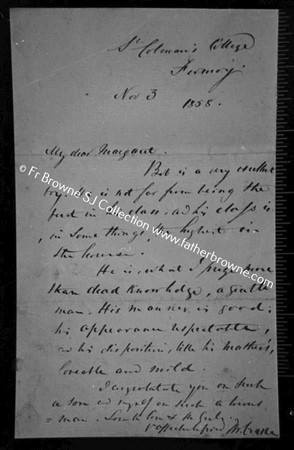 St Colman's College
Fermoy
Nov 3
1858.
My dear Margaret
But is a very excellent
boy. He is not far from being the
best in his class, and his class is
, in some things, the highest in
the house.
He is, what I prize more
than dead knowledge, a gentle
man. His manner is good;
his appearance respectable,
and his disposition, like his mother's,
loveable and mild.
I congratulate you on such
a son and myself on such a
man.
© Fr Browne SJ Collection www.fatherbrowne.com